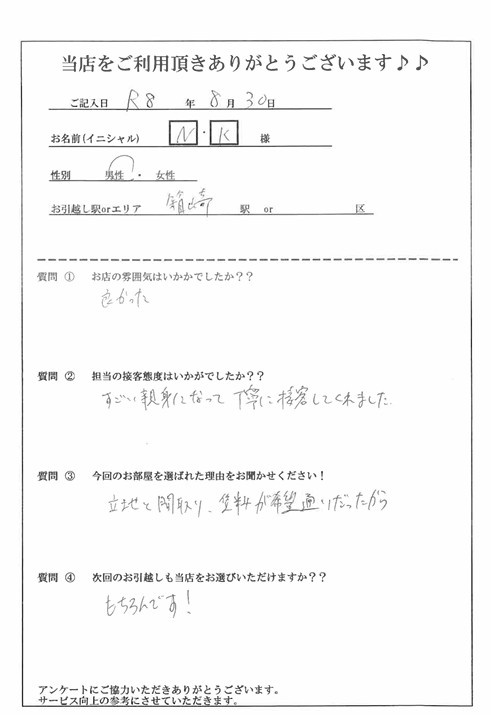 当店をご利用頂きありがとうございます♪♪
ご記入日 R8 年 8 月 30 日
お名前(イニシャル) N・K 様
性別 男性・女性
お引越し駅orエリア 箱崎 駅 or 区
質問 ① お店の雰囲気はいかかでしたか??
良かった
質問 ② 担当の接客態度はいかがでしたか??
すごい親身になって丁寧に接客してくれました
質問 ③ 今回のお部屋を選ばれた理由をお聞かせください!
立地と間取り、賃料が希望通りだったから
質問 ④ 次回のお引越しも当店をお選びいただけますか??
もちろんです!
アンケートにご協力いただきありがとうございます。
サービス向上の参考にさせていただきます。